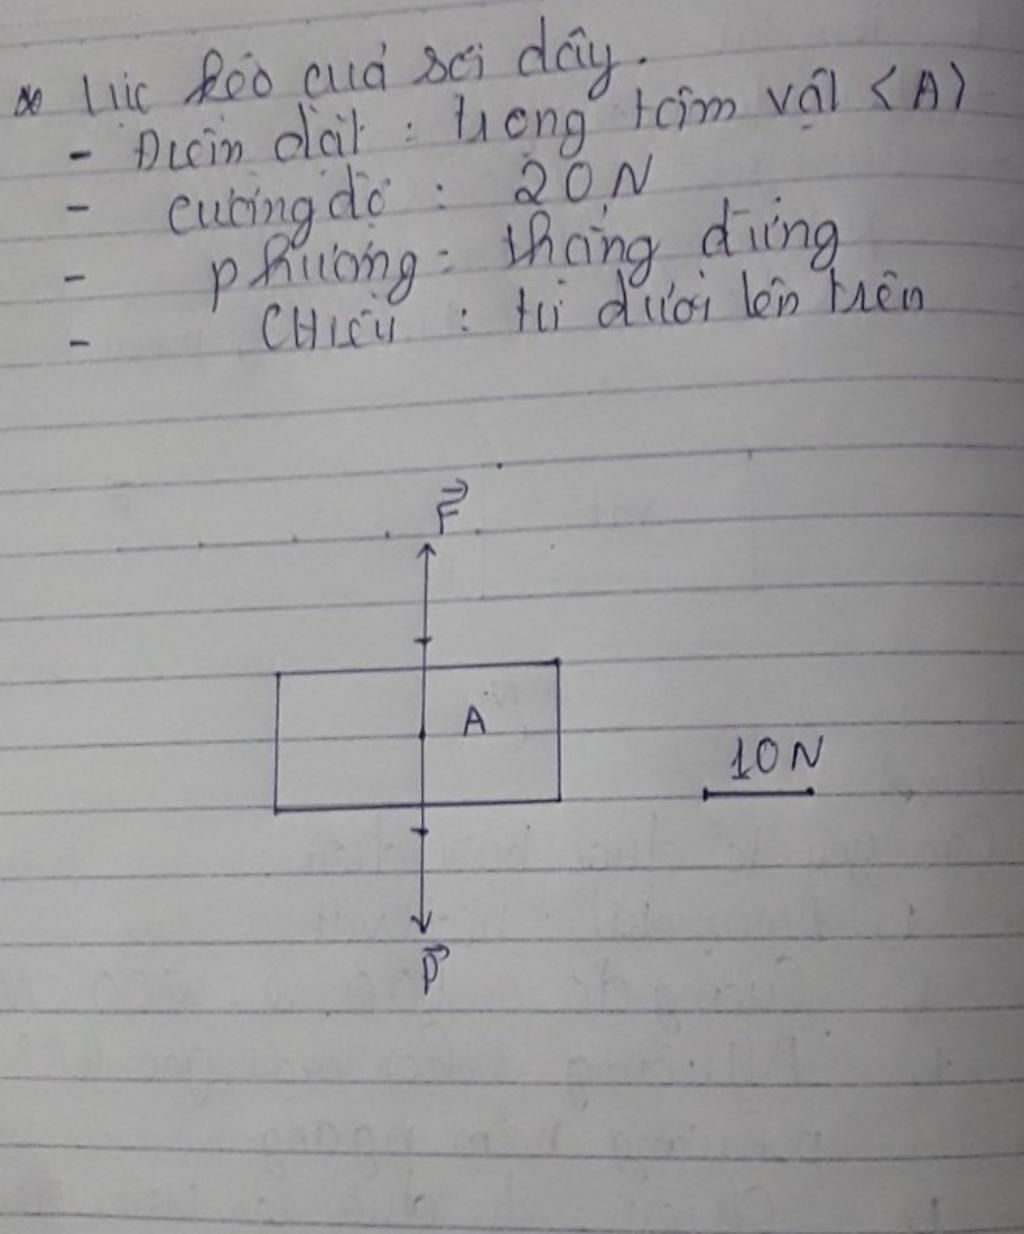 * Lực kéo của sợi dây.
- Điểm đặt : trọng tâm vật <A>
- cường độ : 20N
- phương : thẳng đứng
- CHiều : từ dưới lên trên
F
A
10N
P